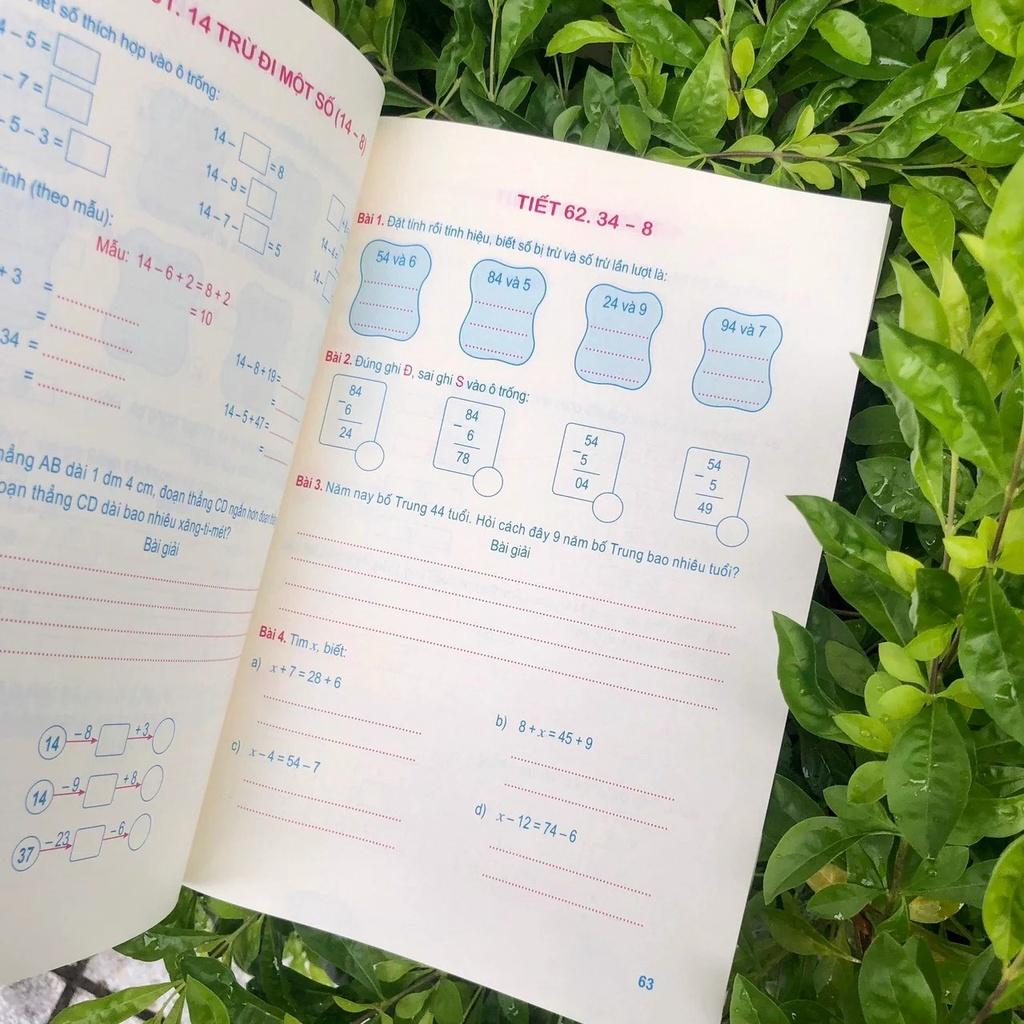 14 TRỪ ĐI MỘT SỐ (14 – 8)
số thích hợp vào ô trống:
– 5 =
– 7 =
– 5 – 3 =
14 – = 8
14 – 9 =
14 – 7 – = 5
(theo mẫu):
Mẫu: 14 – 6 + 2 = 8 + 2
= 10
+ 3 =
=
34 =
=
14 – 8 + 19 =
=
14 – 5 + 47 =
=
AB dài 1 dm 4 cm, đoạn thẳng CD ngắn hơn đoạn
thẳng CD dài bao nhiêu xăng-ti-mét?
Bài giải
14 – 8 + 3
14 – 9 + 8
37 – 23 – 6
TIẾT 62. 34 – 8
Bài 1. Đặt tính rồi tính hiệu, biết số bị trừ và số trừ lần lượt là:
54 và 6
84 và 5
24 và 9
94 và 7
Bài 2. Đúng ghi Đ, sai ghi S vào ô trống:
84
– 6
24
84
– 6
78
54
– 5
04
54
– 5
49
Bài 3. Năm nay bố Trung 44 tuổi. Hỏi cách đây 9 năm bố Trung bao nhiêu tuổi?
Bài giải
Bài 4. Tìm x, biết:
a) x + 7 = 28 + 6
b) 8 + x = 45 + 9
c) x – 4 = 54 – 7
d) x – 12 = 74 – 6
63